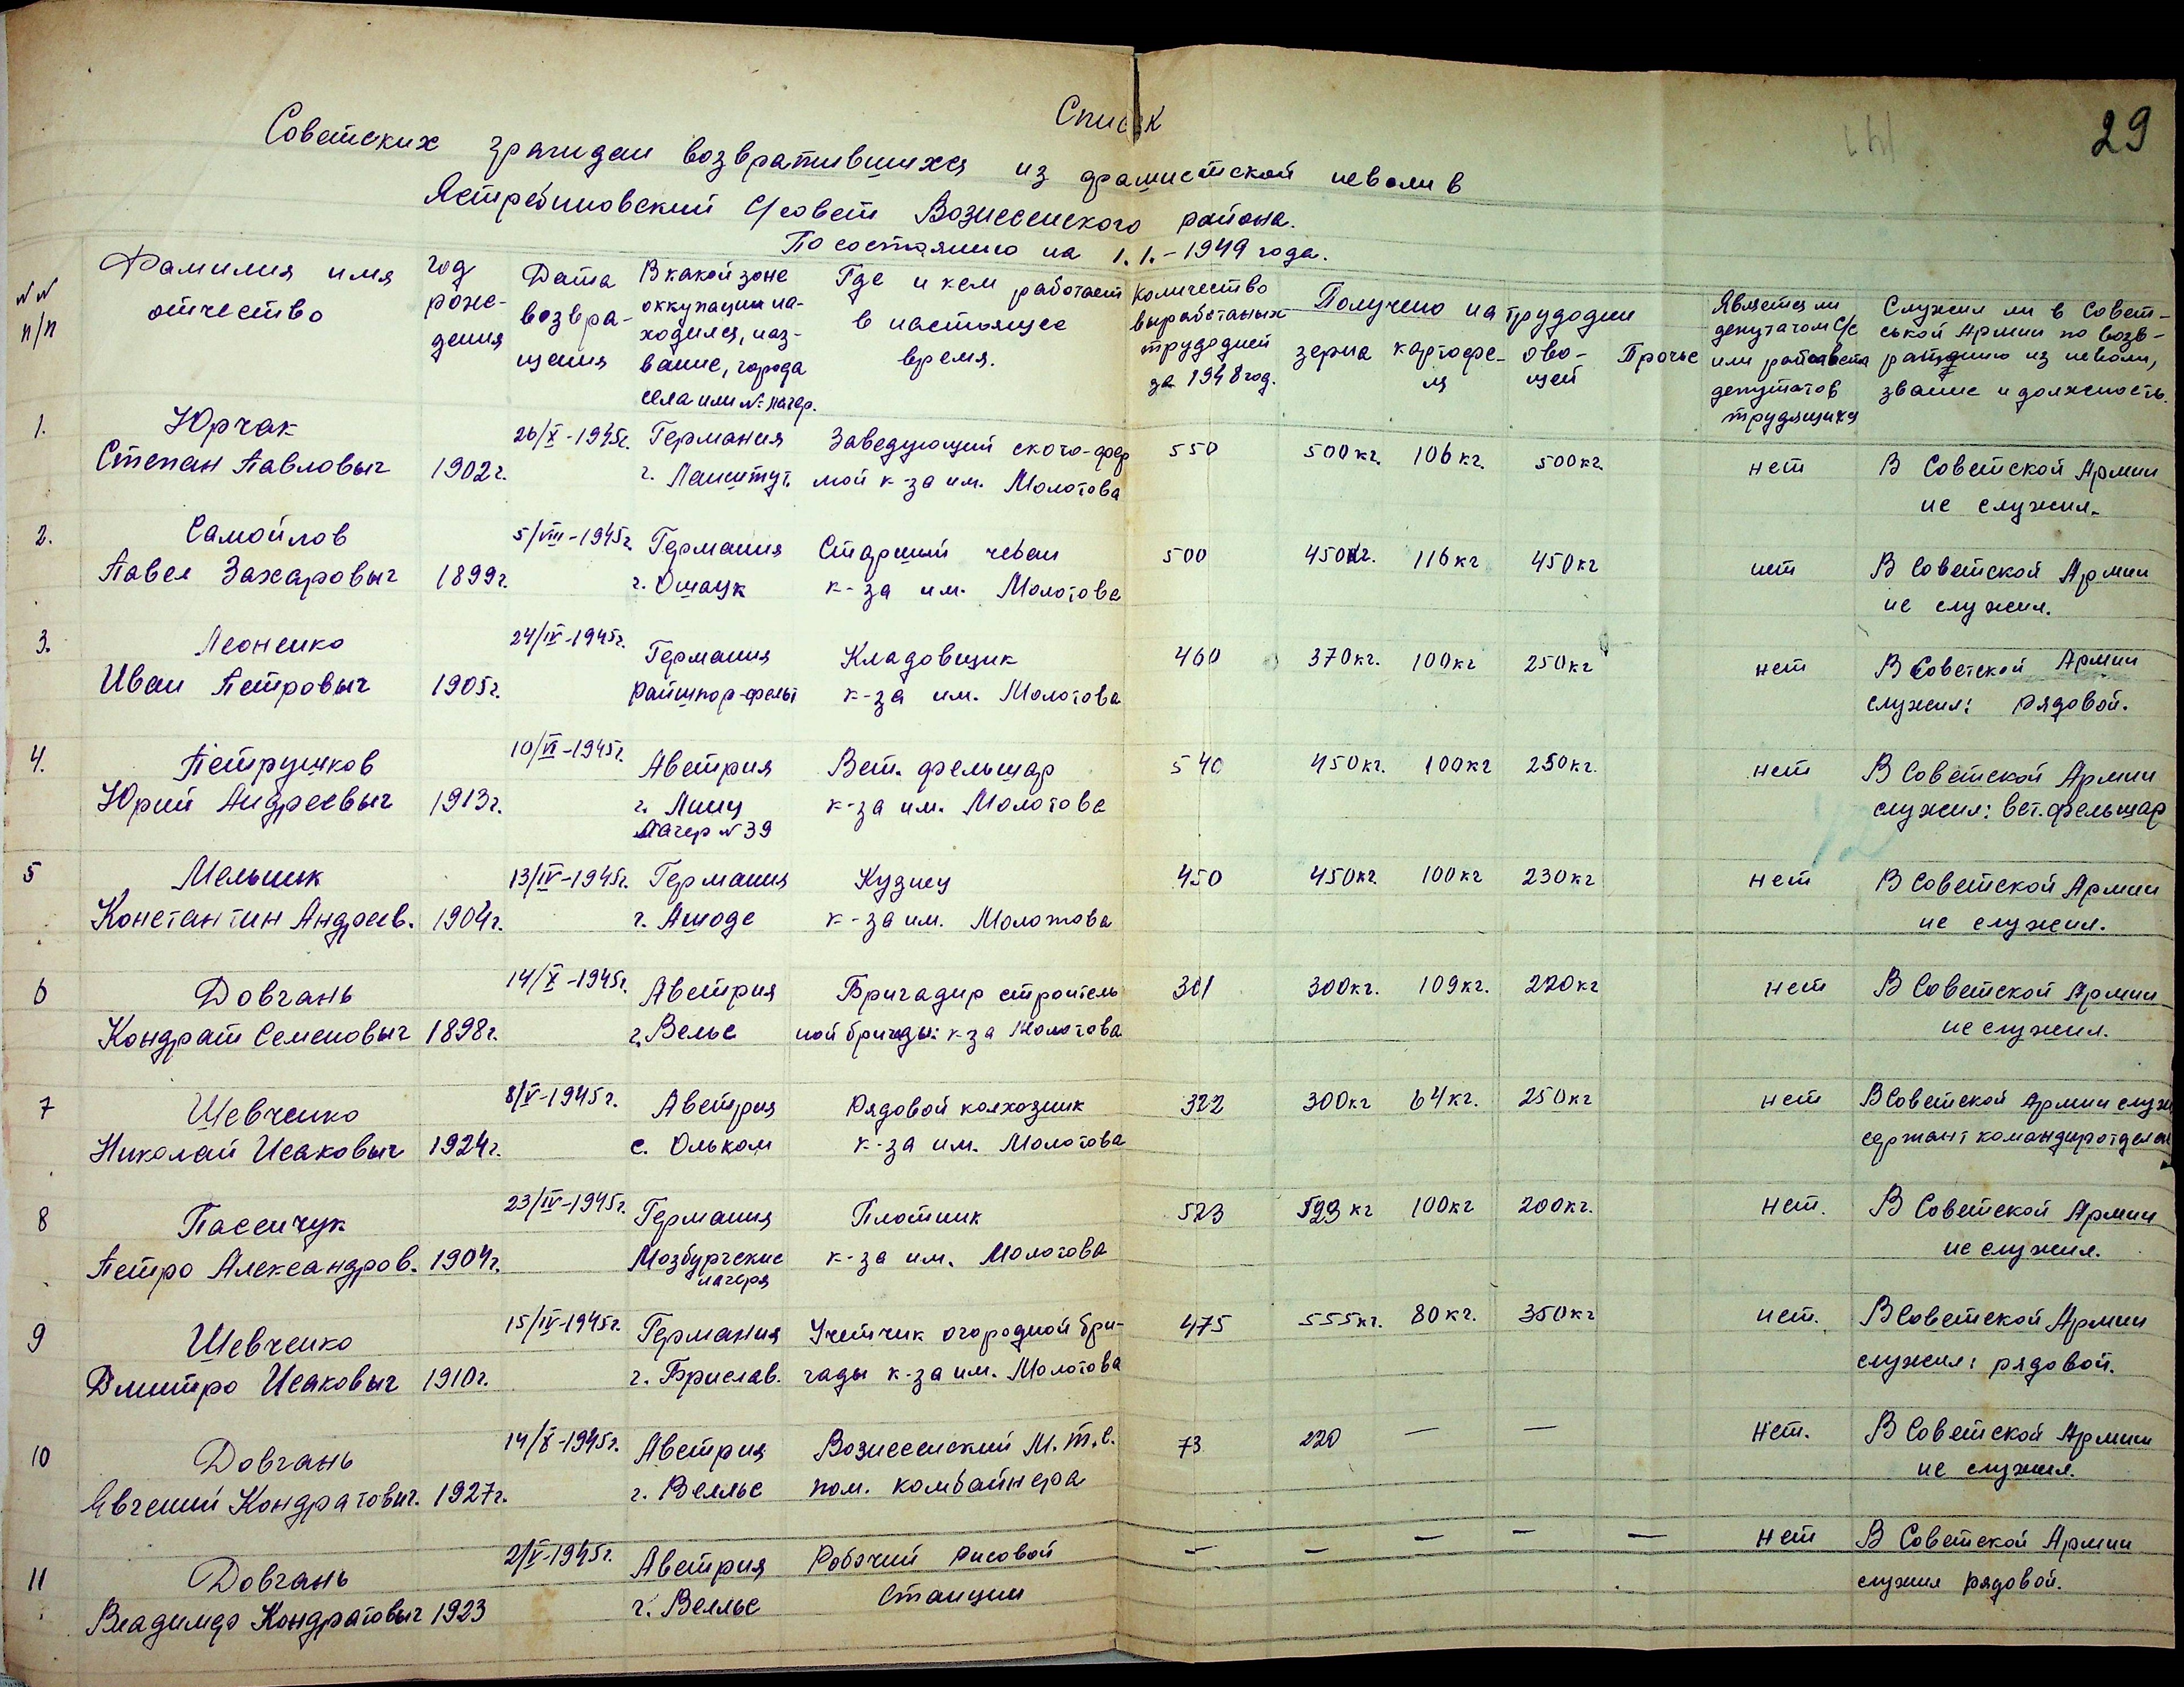 29
Список
Советских граждан возвратившихся из фашистской неволи в
Ястребиновский С/совет Вознесенского района.
По состоянию на 1.1.-1949 года.
№№ п/п
Фамилия имя отчество
год рождения
Дата возвращения
В какой зоне оккупации находился, название, города села или №-лагер.
Где и кем работает в настоящее время.
Количество выработаных трудодней за 1948 год.
Получено на трудодни
зерна
картофеля
овощей
Прочье
Является ли депутатом С/с или райсовета депутатов трудящихся
Служил ли в Советськой Армии по возвращению из неволи, звание и должность.
1. Юрчак 26/X-1945г. Германия Заведующий ското-фер 550 500кг. 106кг. 500кг. нет В Советской Армии
Степан Павловыч 1902г. г. Ланштут. мой к-за им. Молотова не служил.
2. Самойлов 5/VIII-1945г. Германия Старший чебан 500 450кг. 116кг 450кг нет В Советской Армии
Павел Захаровыч 1899г. г. Ошацк к-за им. Молотова не служил.
3. Леоненко 24/IV-1945г. Германия Кладовщик 460 370кг. 100кг 250кг нет В Советской Армии
Иван Петровыч 1905г. Райшпор-фельт к-за им. Молотова служил: рядовой.
4. Петрушков 10/VI-1945г. Австрия Вет. фельшар 540 450кг. 100кг 250кг. нет В Советской Армии
Юрий Андреевыч 1913г. г. Линц к-за им. Молотова служил: вет. фельшар
Лагер №39
5 Мельник 13/IV-1945г. Германия Кузнец 450 450кг. 100кг 230кг нет В Советской Армии
Константин Андреев. 1904г. г. Ашоде к-за им. Молотова не служил.
6 Довгань 14/X-1945г. Австрия Бригадир строитель 301 300кг. 109кг. 220кг нет В Советской Армии
Кондрат Семеновыч 1898г. г. Вельс ной бригады: к-за Молотова не служил.
7 Шевченко 8/V-1945г. Австрия Рядовой колхозник 322 300кг 64кг. 250кг нет В Советской Армии служ
Николай Исаковыч 1924г. с. Ольком к-за им. Молотова сержант командир отделен
8 Пасенчук 23/IV-1945г. Германия Плотник 523 523кг 100кг 200кг. нет. В Советской Армии
Петро Александров. 1904г. Мозбургские лагеря к-за им. Молотова не служил.
9 Шевченко 15/IV-1945г. Германия Учетчик огородной бри- 475 555кг. 80кг. 350кг нет. В Советской Армии
Дмитро Исаковыч 1910г. г. Брислав. гады к-за им. Молотова служил: рядовой.
10 Довгань 14/X-1945г. Австрия Вознесенский М.т.с. 73 220 — — нет. В Советской Армии
Евгений Кондратовыч. 1927г. г. Велльс пом. комбайнера не служил.
11 Довгань 2/V-1945г. Австрия Робочий рисовой — — — — — нет В Советской Армии
Владимер Кондратовыч 1923 г. Велльс Станции служил рядовой.